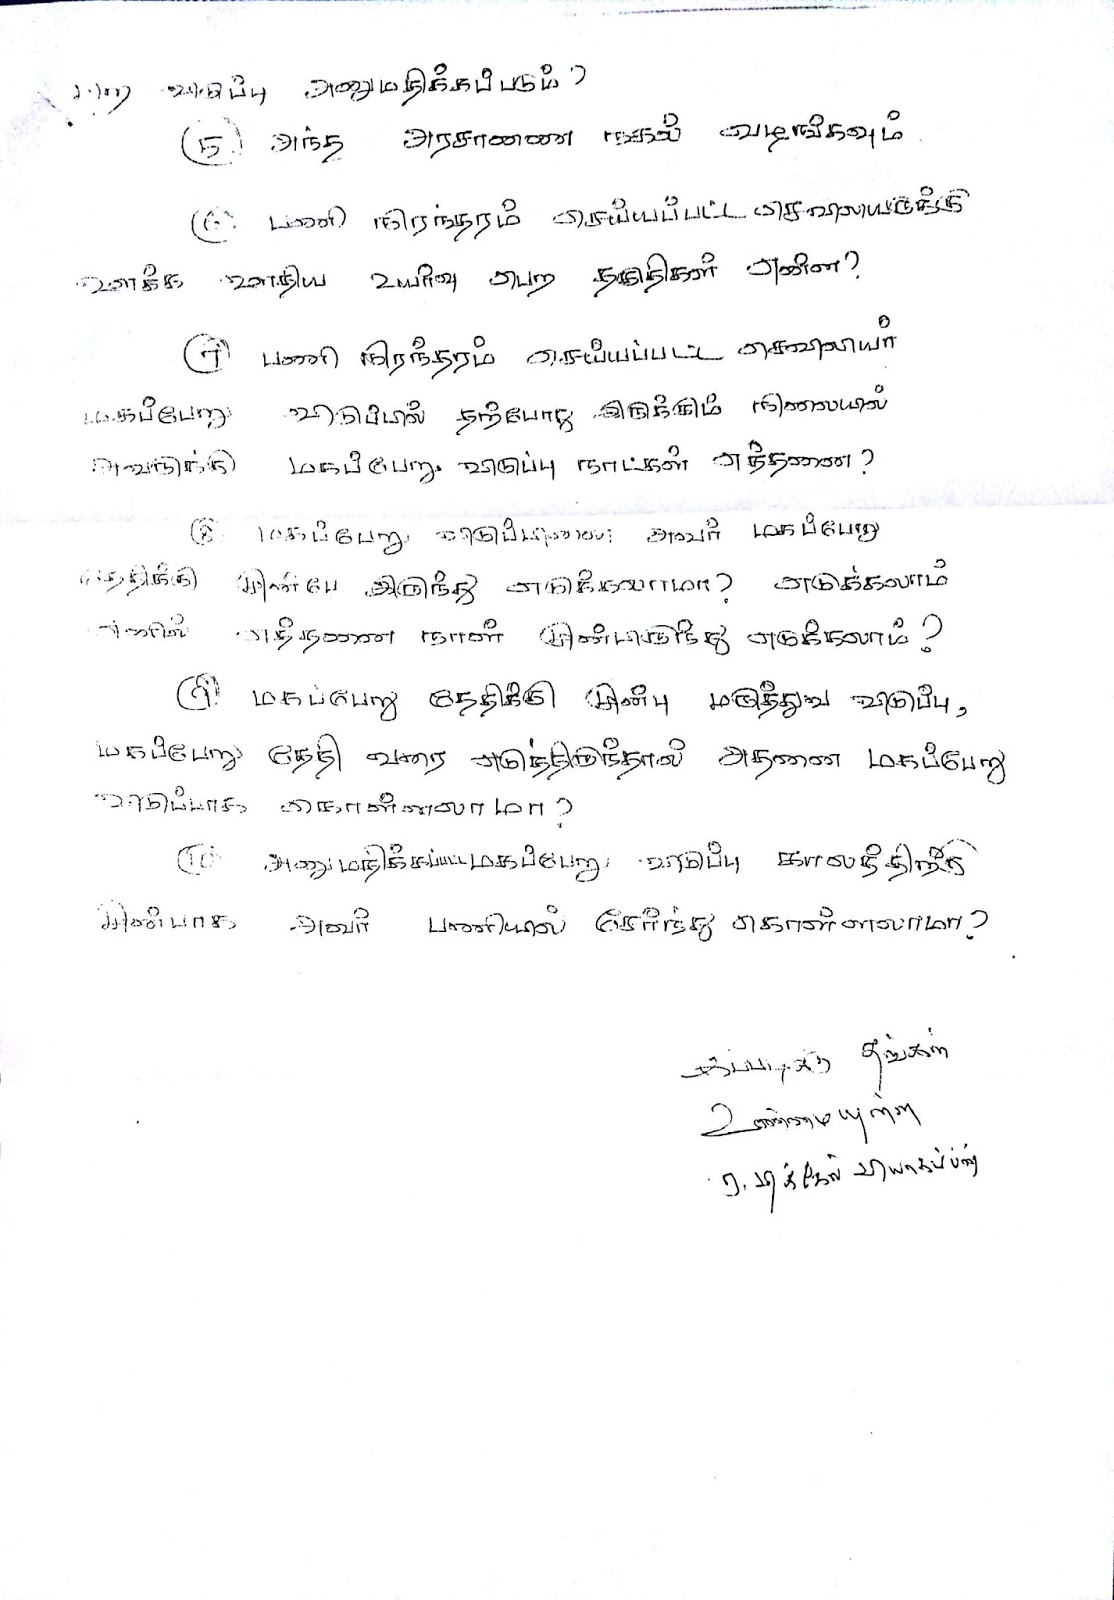 விடுப்பு அனுமதிக்கப்படும்?
(5) அந்த அரசாணை நகல் வழங்கவும்
(6) பணி நிரந்தரம் செய்யப்பட்ட செவிலியருக்கு
ஊக்க ஊதிய உயர்வு பெற தகுதிகள் என்ன?
(7) பணி நிரந்தரம் செய்யப்பட்ட செவிலியர்
மகப்பேறு விடுப்பில் தற்போது இருக்கும் நிலையில்
அவருக்கு மகப்பேறு விடுப்பு நாட்கள் எத்தனை?
(8) மகப்பேறு விடுப்பினை அவர் மகப்பேறு
தேதிக்கு முன்பே இருந்து எடுக்கலாமா? எடுக்கலாம்
எனில் எத்தனை நாள் முன்பிருந்து எடுக்கலாம்?
(9) மகப்பேறு தேதிக்கு முன்பு மருத்துவ விடுப்பு,
மகப்பேறு தேதி வரை எடுத்திருந்தால் அதனை மகப்பேறு
விடுப்பாக கொள்ளலாமா?
(10) அனுமதிக்கப்பட்ட மகப்பேறு விடுப்பு காலத்திற்கு
முன்பாக அவர் பணியில் சேர்ந்து கொள்ளலாமா?
இப்படிக்கு தங்கள்
உண்மையுள்ள